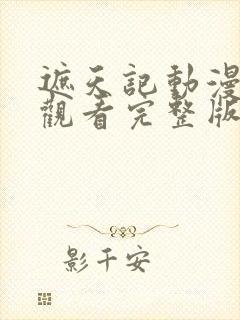 遮天記動漫
觀看完整版
影千安